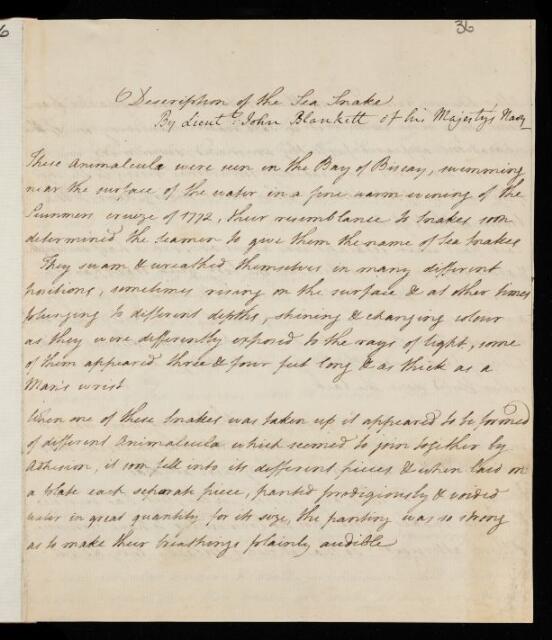 36
Description of the Sea Snake
By Lieut.t John Blankett of his Majesty's Navy
These Animalcula were seen in the Bay of Biscay, swimming
near the surface of the water in a fine warm evening of the
Summers cruize of 1772, their resemblance to Snakes soon
determined the Seamen to give them the name of Sea Snakes
They swam & wreathed themselves in many different
positions, sometimes rising on the surface & at other times
plunging to different depths, shining & changing colour
as they were differently exposed to the rays of light, some
of them appeared three & four feet long & as thick as a
Man's wrist
When one of these Snakes was taken up it appeared to be formed
of different Animalcula which seemed to join together by
Adhesion, it soon fell into its different pieces & when laid on
a plate each separate piece, panted prodigiously & voided
water in great quantity for its size, the panting was so strong
as to make their breathings plainly audible